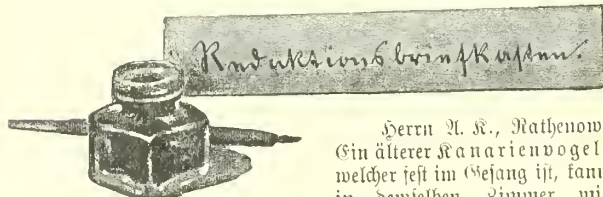 Redaktionsbriefkasten.
Herrn A. K., Rathenow
Ein älterer Kanarienvogel
welcher fest im Gesang ist, kann
in demselben Zimmer mi